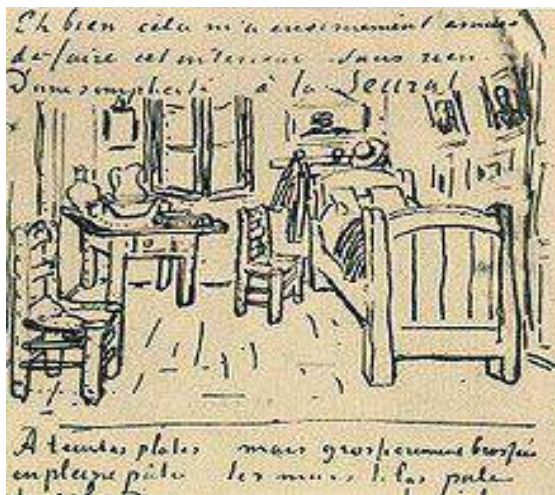 Eh bien cela m'a enormement amusé
de faire cet interieur sans rien
D'une simplicité à la Seurat
A teintes plates mais grossierement brossées
en pleine pâte les murs lilas pale